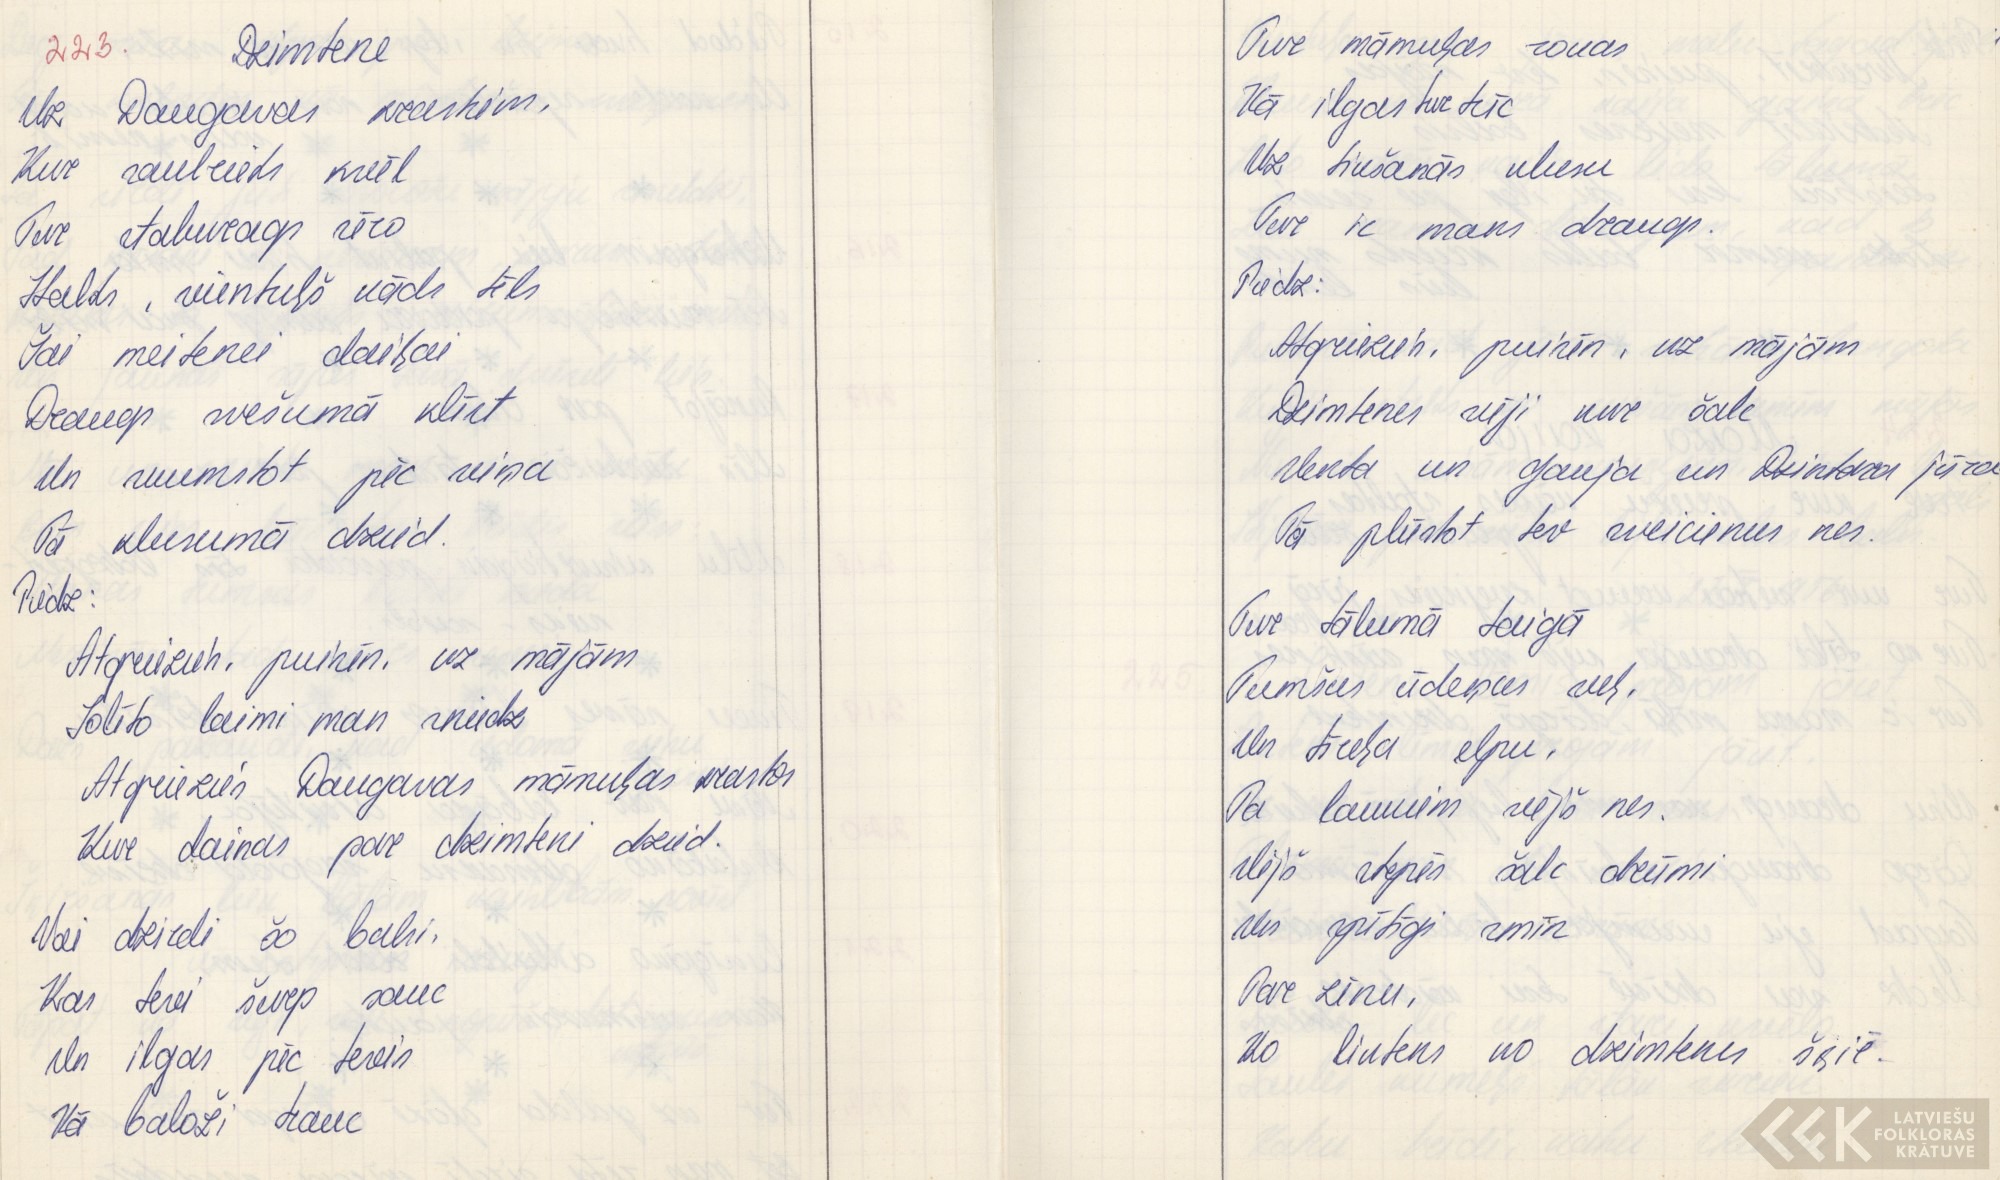 223. Dzimtene
Uz Daugavas krastiem,
Kur saulriets kvēl
Tur staburags sēro
Stalts, vientuļš kāds tēls
Šai meitenei daiļai
Draugs svešumā klīst
Un skumstot pēc viņa
Tā klusumā dzied.
Piedz:
Atgriezies, puisīn, uz mājām
Solīto laimi man sniedz
Atgriezies Daugavas māmuļas krastos
Kur dainas par dzimteni dzied.
Vai dzirdi šo balsi,
Kas tevi šurp sauc
Un ilgas pēc tevis
Kā baloži trauc
Tur māmuļas rokas
Kā ilgas tur trīc
Uz tikšanās klusu
Tur ir mans draugs.
Piedz:
Atgriezies, puisīn, uz mājām
Dzimtenes vēji kur šalc
Venta un Gauja un Dzintara jūra
Tā plūstot tev sveicienus nes.
Tur tālumā taigā
Tumšus ūdeņus veļ,
Un tvaļa elpu,
Pa laukiem vējš nes.
Vējš stepēs šalc dzūmi
Un spītīgi smīn
Par ziņu,
Ko liktens no dzimtenes šķir.
LATVIEŠU
FOLKLORAS
KRĀTUVE